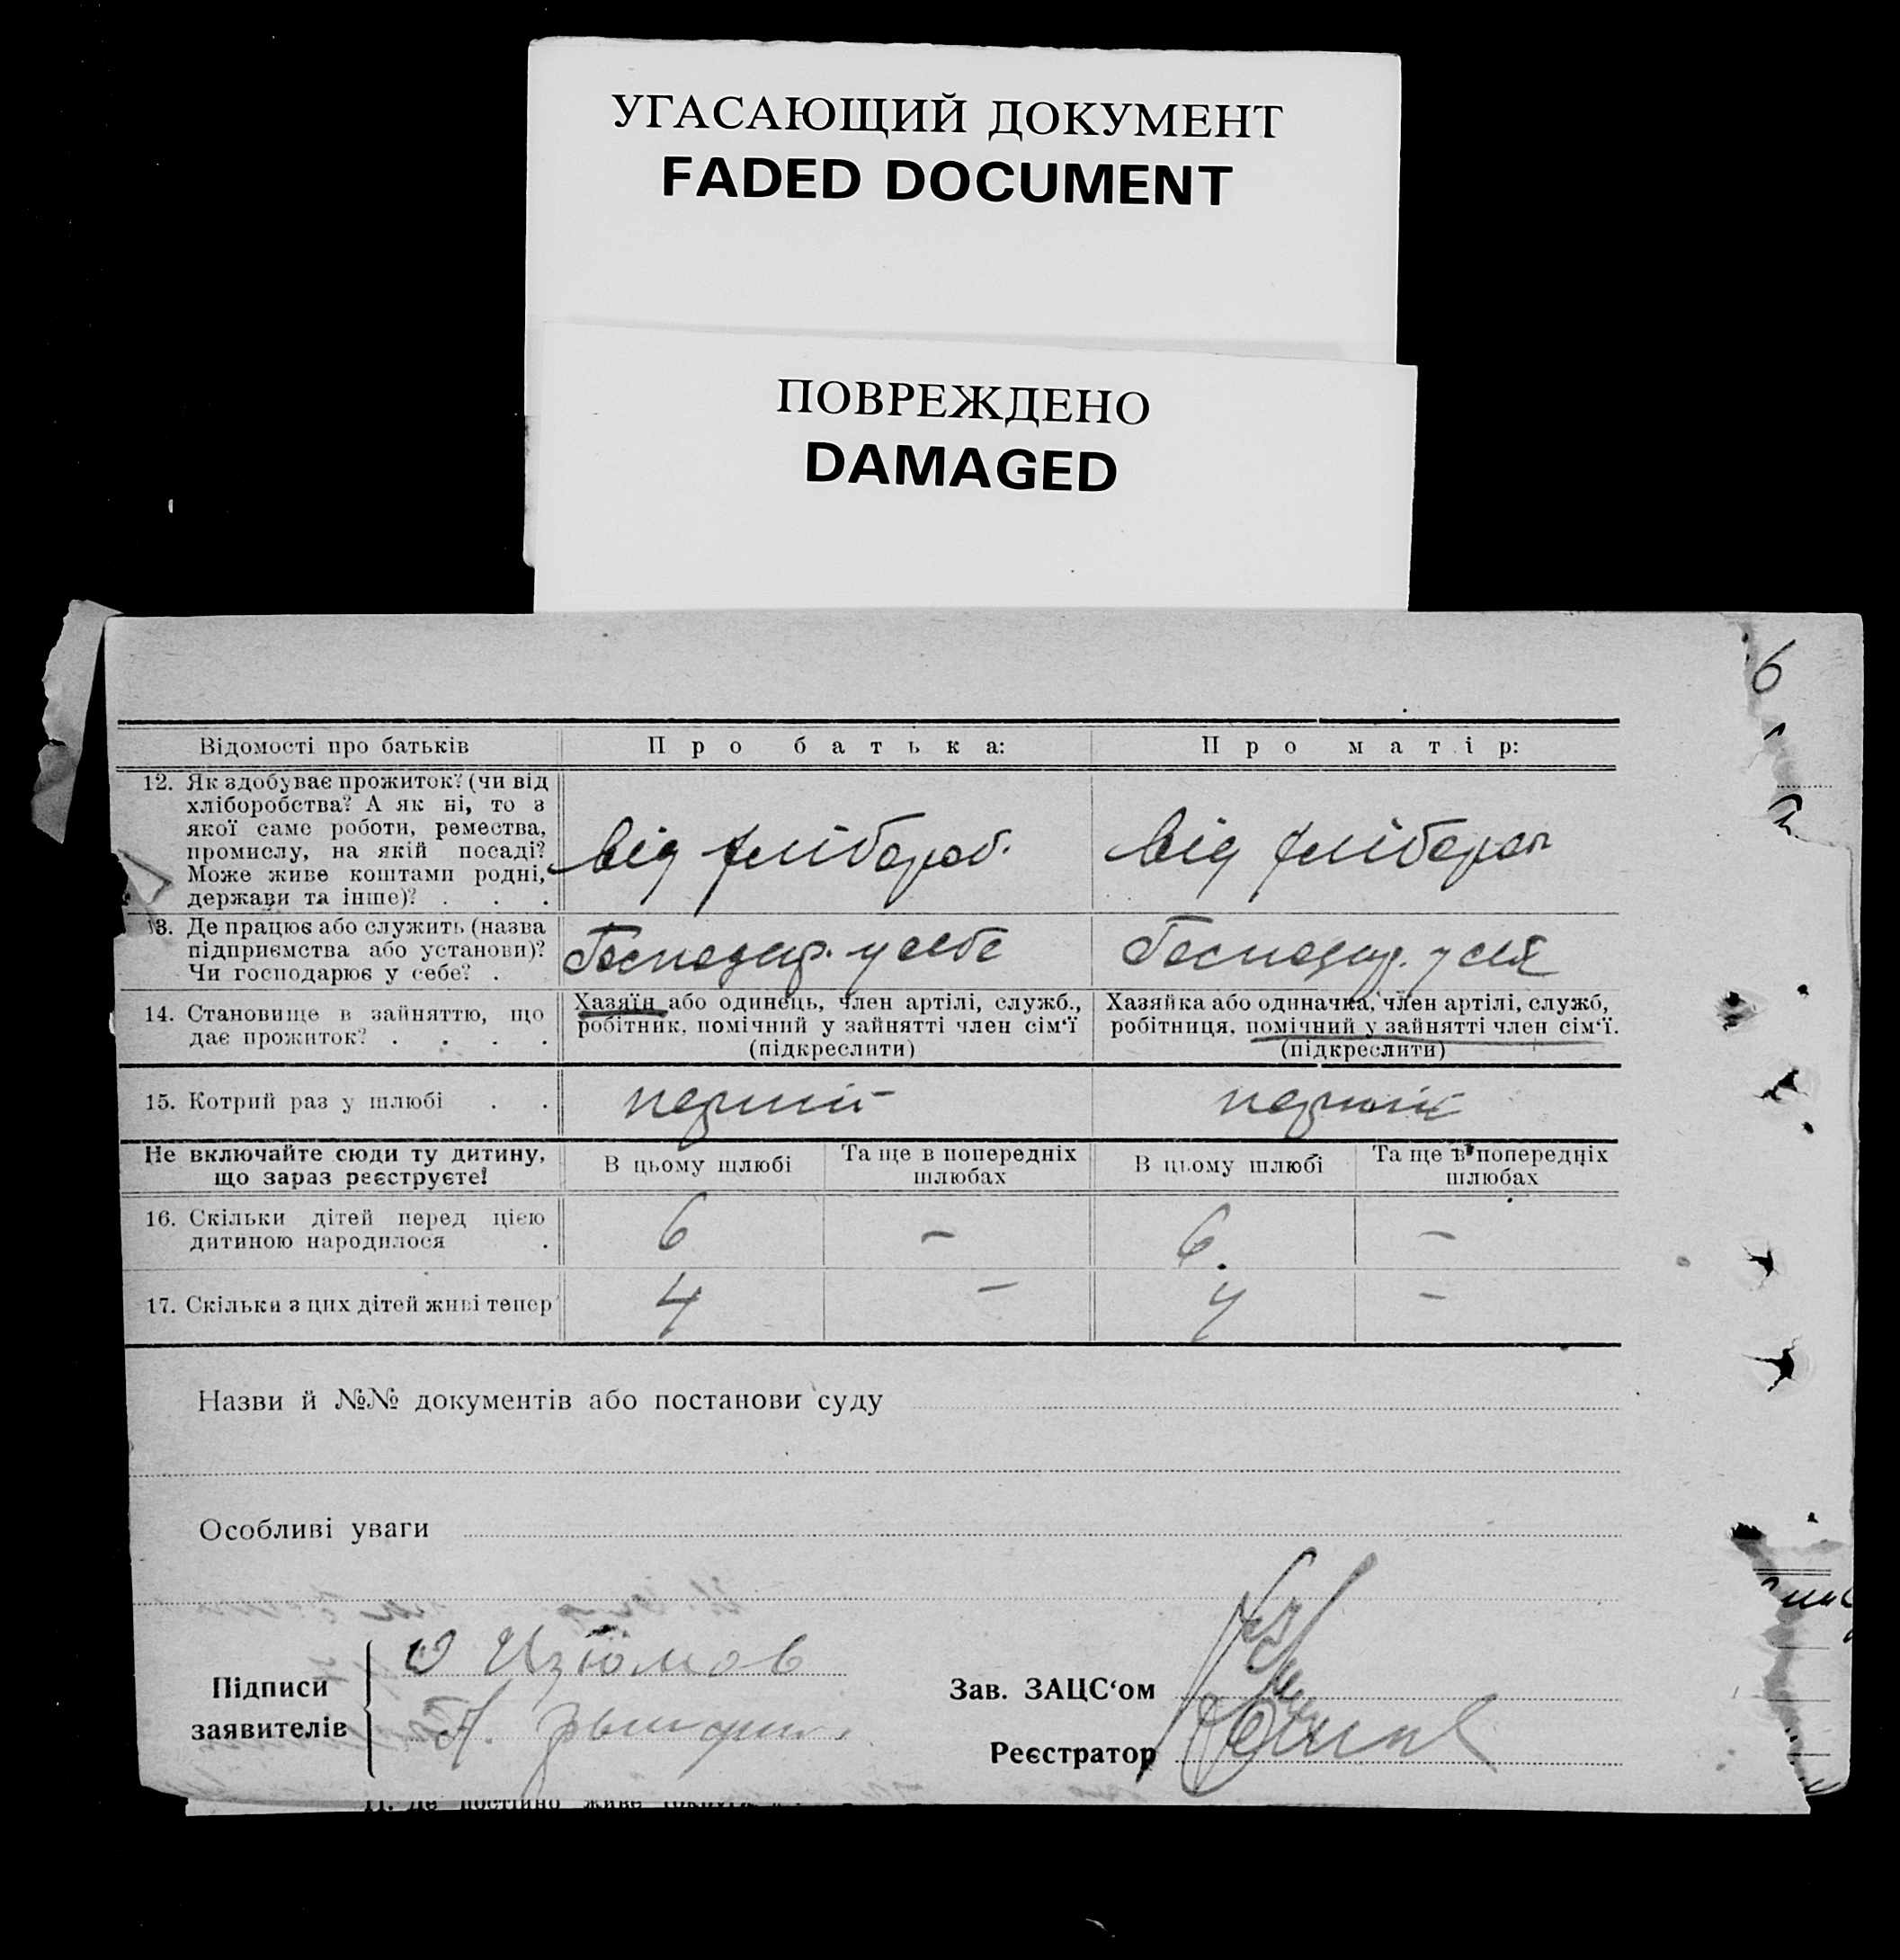 УГАСАЮЩИЙ ДОКУМЕНТ
FADED DOCUMENT
ПОВРЕЖДЕНО
DAMAGED
6
Відомості про батьків
Про батька:
Про матір:
12. Як здобуває прожиток? (чи від
хліборобства? А як ні, то з
якої саме роботи, ремества,
промислу, на якій посаді?
Може живе коштами родні,
держави та інше)? . . .
від хлібороб.
від хлібороб
13. Де працює або служить (назва
підприємства або установи)?
Чи господарює у себе? .
Господар. у себе
Господар. у себе
14. Становище в зайняттю, що
дає прожиток? . . . .
Хазяїн або одинець, член артілі, служб.,
робітник, помічний у зайнятті член сім'ї
(підкреслити)
Хазяйка або одиначка, член артілі, служб,
робітниця, помічний у зайнятті член сім'ї.
(підкреслити)
15. Котрий раз у шлюбі . .
перший
перший
Не включайте сюди ту дитину,
що зараз реєструєте!
В цьому шлюбі
Та ще в попередніх
шлюбах
В цьому шлюбі
Та ще в попередніх
шлюбах
16. Скільки дітей перед цією
дитиною народилося .
6
–
6
–
17. Скільки з цих дітей живі тепер
4
–
4
–
Назви й №№ документів або постанови суду
Особливі уваги
Підписи
заявителів
Изюмов
А.
Зав. ЗАЦС'ом
Реєстратор
11. Де постійно живе